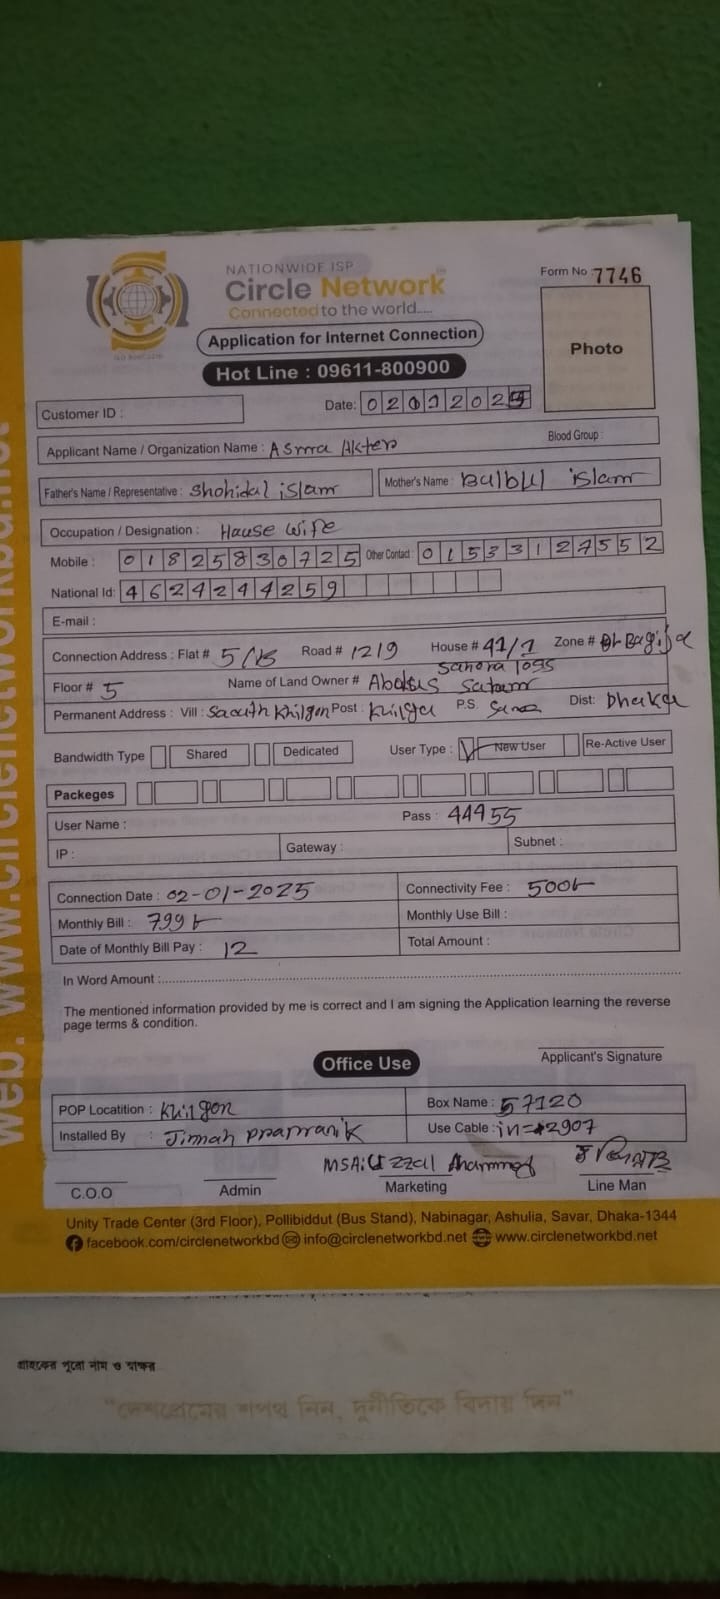 NATIONWIDE ISP
Circle Network
Connected to the world.....
Form No : 7746
Application for Internet Connection
Photo
Hot Line : 09611-800900
Customer ID :
Date: 02012025
Applicant Name / Organization Name : Asma Akter
Blood Group :
Father's Name / Representative : Shohidul islam
Mother's Name : Bulbul islam
Occupation / Designation : Hause wife
Mobile : 01825830725 Other Contact : 01533127552
National Id: 4624244259
E-mail :
Connection Address : Flat # 5/B Road # 1219 House # 41/1 Zone #
Floor # 5 Name of Land Owner #
Permanent Address : Vill : Post : P.S. Dist: Dhaka
Bandwidth Type Shared Dedicated User Type : New User Re-Active User
Packeges
User Name : Pass : 44955
IP : Gateway : Subnet :
Connection Date : 02-01-2025 Connectivity Fee : 500
Monthly Bill : 799 Monthly Use Bill :
Date of Monthly Bill Pay : 12 Total Amount :
In Word Amount :
The mentioned information provided by me is correct and I am signing the Application learning the reverse
page terms & condition.
Office Use
Applicant's Signature
POP Locatition : Khilgon Box Name : 57120
Installed By : Jimah pramanik Use Cable :
C.O.O Admin Marketing Line Man
Unity Trade Center (3rd Floor), Pollibiddut (Bus Stand), Nabinagar, Ashulia, Savar, Dhaka-1344
facebook.com/circlenetworkbd info@circlenetworkbd.net www.circlenetworkbd.net
web. www.circlenetworkbd.net
গ্রাহকের পুরো নাম ও স্বাক্ষর
"দেশপ্রেমের শপথ নিন, দুর্নীতিকে বিদায় দিন"